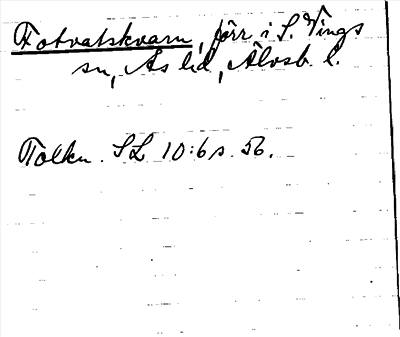 Fotvatskvarn, förr i S. Vings
sn, Ås hd, Älvsb. l.
Tolkn. SL 10:6 s. 56.